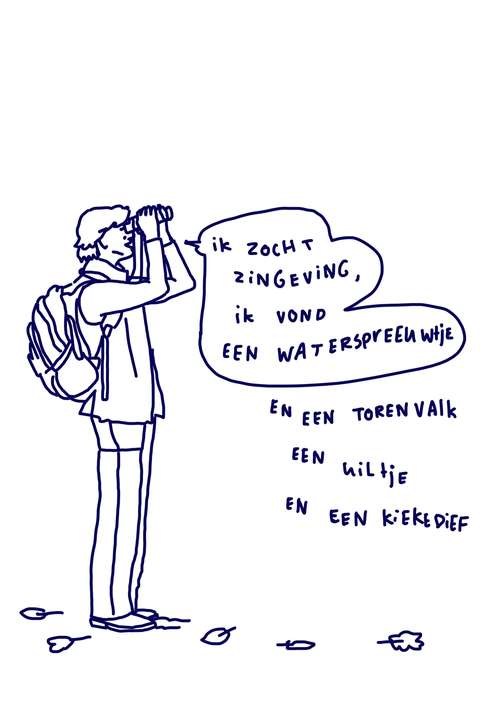 ik ZOCHT
ZiNGEViNG,
ik VOND
EEN WATERSPrEEUWtje
EN EEN TORENVAlk
EEN UiLtjE
EN EEN KiEKEDiEF